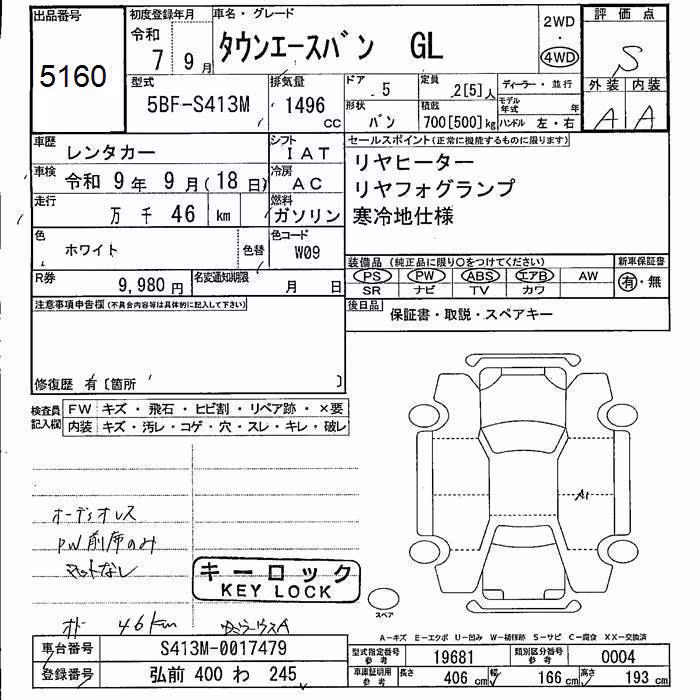 出品番号
5160
初度登録年月
令和
7年 9月
車名・グレード
タウンエースバン GL
2WD
・
4WD
評価点
S
外装 内装
A A
型式
5BF-S413M
排気量
1496
cc
ドア
5
定員
2[5]人
ディーラー・並行
形状
バン
積載
700[500]kg
モデル年式
年
ハンドル 左・右
車歴
レンタカー
シフト
IAT
車検
令和 9年 9月(18日)
冷房
AC
走行
万 千 46 km
燃料
ガソリン
色
ホワイト
色替
色コード
W09
R券
9,980円
名変通知期限
月 日
セールスポイント(正常に機能するものに限ります)
リヤヒーター
リヤフォグランプ
寒冷地仕様
装備品 (純正品に限り○をつけてください)
PS PW ABS エアB AW
SR ナビ TV カワ
新車保証書
有・無
後日品
保証書・取説・スペアキー
注意事項申告欄(不具合内容等は具体的に記入して下さい)
修復歴 有〔箇所 〕
検査員
記入欄
FW キズ・飛石・ヒビ割・リペア跡・×要
内装 キズ・汚レ・コゲ・穴・スレ・キレ・破レ
オーディオレス
PW前席のみ
マットなし
キーロック
KEY LOCK
オド 46km
A1
スペア
A-キズ E-エクボ U-凹み W-補修跡 S-サビ C-腐食 XX-交換済
車台番号
S413M-0017479
登録番号
弘前 400 わ 245
型式指定番号
参考
19681
類別区分番号
参考
0004
車庫証明用
参考
長さ
406 cm
幅
166 cm
高さ
193 cm